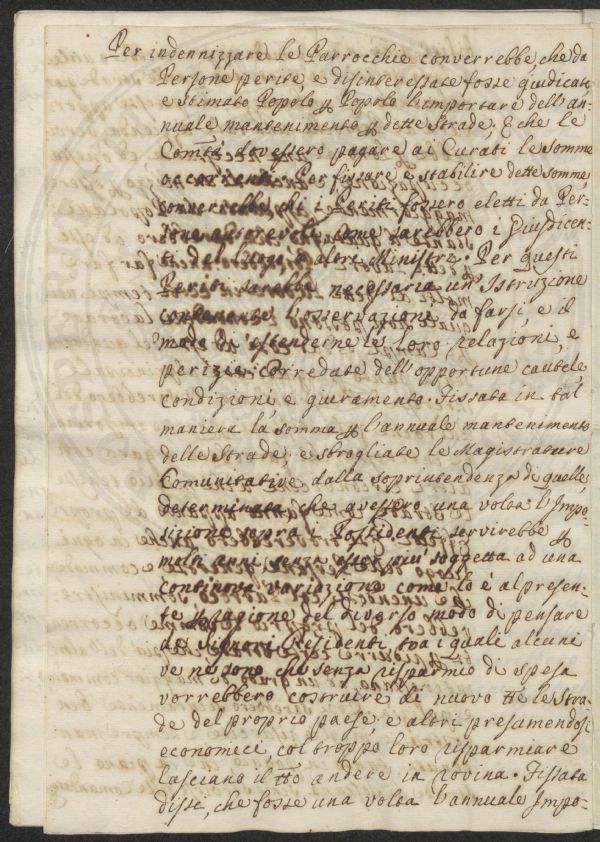 Per indennizzare le Parrocchie converrebbe, che da
Persone perite, e disinteressate fosse giudicato
e stimato Popolo p Popolo l'importare dell'an-
nuale mantenimento p dette Strade; E che le
Comtà dovessero pagare ai Curati le somme
occorrenti. Per fissare e stabilire dette somme,
converrebbe, chi i Periti fossero eletti da Per-
sone autorevoli, come sarebbero i Giusdicen-
ti del Luogo o altri Ministri. Per questi
Periti sarebbe necessaria un'Istruzione
contenente l'osservazioni da farsi, e il
modo di estenderne le loro relazioni, e
perizie corredate dell'opportune cautele,
condizioni e giuramento. Fissata in tal
maniera la somma p l'annuale mantenimento
delle Strade; e strogliate le Magistrature
Comunitative dalla soprintendenza di quelle,
determinata che avessero una volta l'Impo-
sizione sopra i Possidenti servirebbe p
molti anni senza esser più soggetta ad una
continova variazione come lo è al presen-
te a cagione del diverso modo di pensare
dei Signori Residenti, tra i quali alcuni
ve ne sono che senza risparmio di spesa
vorrebbero costruire di nuovo tte le Stra-
de del proprio paese, e altri presumendosi
economici, col troppo loro risparmiare
lasciano il tto andare in rovina. Fissata
dissi, che fosse una volta l'annuale Impo-